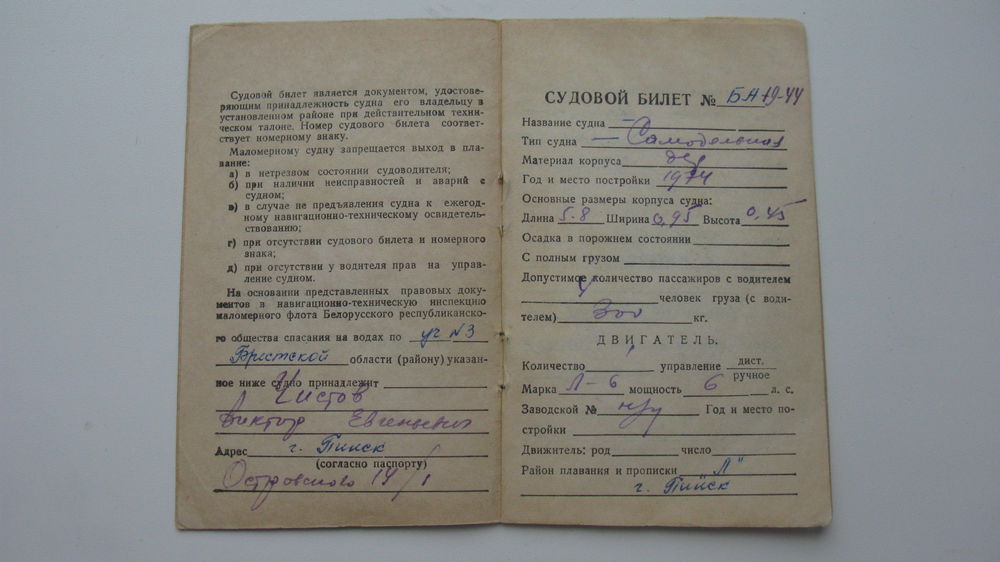 Судовой билет является документом, удостове-
ряющим принадлежность судна его владельцу в
установленном районе при действительном техни-
ческом талоне. Номер судового билета соответ-
ствует номерному знаку.
Маломерному судну запрещается выход в пла-
вание:
а) в нетрезвом состоянии судоводителя;
б) при наличии неисправностей и аварий с
судном;
в) в случае не предъявления судна к ежегод-
ному навигационно-техническому освидетель-
ствованию;
г) при отсутствии судового билета и номерного
знака;
д) при отсутствии у водителя прав на управ-
ление судном.
На основании представленных правовых доку-
ментов в навигационно-техническую инспекцию
маломерного флота Белорусского республиканско-
го общества спасания на водах по уч N3
Брестской области (району) указан-
ное ниже судно принадлежит
Чистов
Виктор Евгеньевич
Адрес г. Пинск
(согласно паспорту)
Островского 14/1
СУДОВОЙ БИЛЕТ № БА 19-44
Название судна —
Тип судна — Самодельная
Материал корпуса дер
Год и место постройки 1974
Основные размеры корпуса судна:
Длина 5.8 Ширина 0,95 Высота 0,45
Осадка в порожнем состоянии
С полным грузом
Допустимое количество пассажиров с водителем
4 человек груза (с води-
телем) 300 кг.
ДВИГАТЕЛЬ.
Количество 1 управление дист.
ручное
Марка Л-6 мощность 6 л. с.
Заводской № н/у Год и место по-
стройки
Движитель: род число
Район плавания и прописки "Л"
г. Пинск